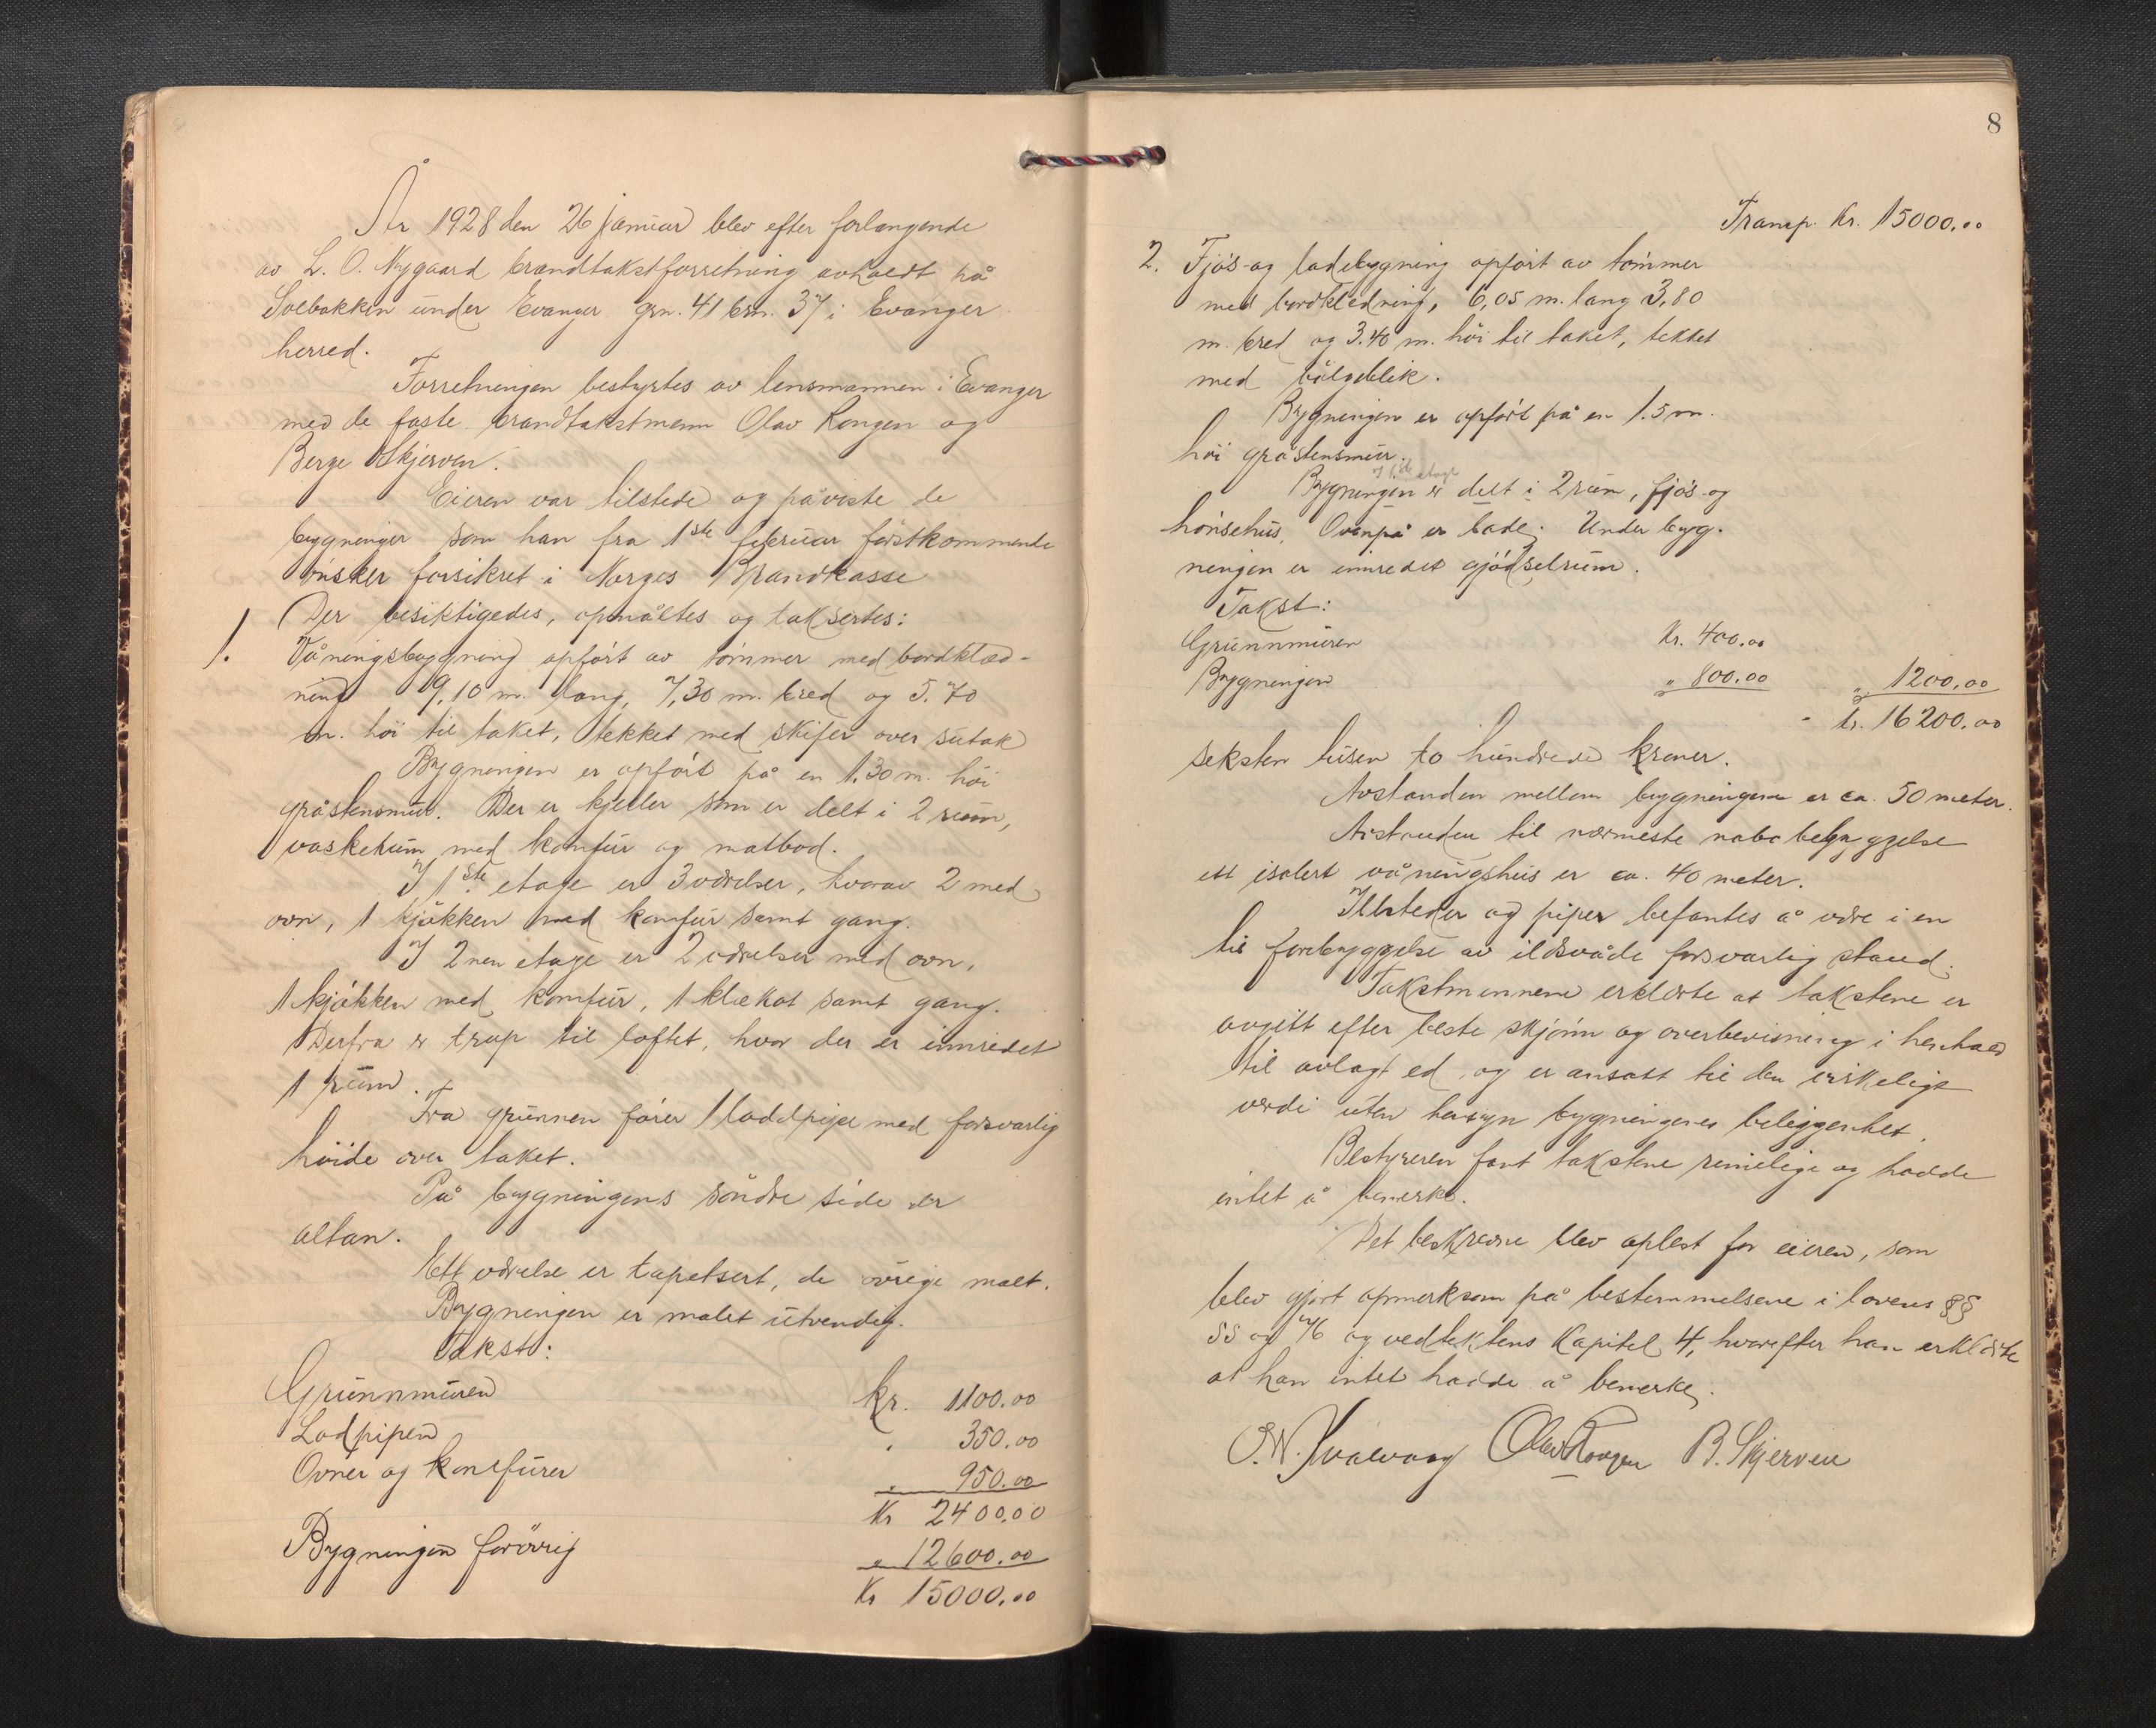 År 1928 den 26 januar blev efter forlangende
av L. O. Nygaard brandtakstforretning avholdt på
Solbakken under Evanger grn. 41 brn. 37 i Evanger
herred.
Forretningen bestyrtes av lensmannen i Evanger
med de faste brandtakstmenn Olav Rongen og
Berge Skjerven.
Eieren var tilstede og påviste de
bygninger som han fra 1ste februar førstkommende
ønsker forsikret i Norges Brandkasse
Der besiktigedes, opmåltes og taksertes:
1. Våningsbygning opført av tømmer med bordklæd-
ning 9,10 m. lang, 7,30 m. bred og 5.70
m. høi til taket, tekket med skifer over sutak
Bygningen er opført på en 1.30 m. høi
gråstensmur. Der er kjeller som er delt i 2 rum,
vaskerum med komfur og matbod.
I 1ste etage er 3 værelser, hvorav 2 med
ovn, 1 kjøkken med komfur samt gang.
I 2nen etage er 2 værelser med ovn,
1 kjøkken med komfur, 1 klækot samt gang.
Derfra er trap til loftet, hvor der er innredet
1 rum.
Fra grunnen fører 1 loddpipe med forsvarlig
høide over taket.
På bygningens søndre side er
altan.
Ett værelse er tapetsert, de øvrige malt.
Bygningen er malet utvendig.
Takst:
Grunnmuren kr. 1100.00
Lodpipen " 350.00
Ovner og komfurer " 950.00
Kr 2400.00
Bygningen forøvrig " 12600.00
Kr 15000.00
8
Transp. Kr. 15000.00
2. Fjøs- og ladebygning opført av tømmer
med bordkledning, 6,05 m. lang 3,80
m. bred og 3.40 m. høi til taket, tekket
med bølgeblik.
Bygningen er opført på en 1.5 m.
høi gråstensmur.
I 1ste etage
Bygningen er delt i 2 rum, fjøs- og
hønsehus. Ovenpå er lade. Under byg-
ningen er innredet gjødselrum.
Takst:
Grunnmuren Kr. 400.00
Bygningen " 800.00 " 1200.00
kr. 16200.00
seksten tusen to hundrede kroner.
Avstanden mellem bygningene er ca. 50 meter.
Avstanden til nærmeste nabobebyggelse
ett isolert våningshus er ca. 40 meter.
Illsteder og piper befantes å være i en
til forebyggelse av ildsvåde forsvarlig stand.
Takstmennene erklærte at takstene er
avgitt efter beste skjønn og overbevisning i henhold
til avlagt ed, og er ansatt til den virkelige
verdi uten hensyn bygningenes beliggenhet.
Bestyreren fant takstene rimelige og hadde
intet å bemerke.
Det beskrevne blev oplest for eieren, som
blev gjort opmerksom på bestemmelsene i lovens §§
55 og 76 og vedtektens Kapitel 4, hvorefter han erklærte
at han intet hadde å bemerke.
Olav Rongen B. Skjerven